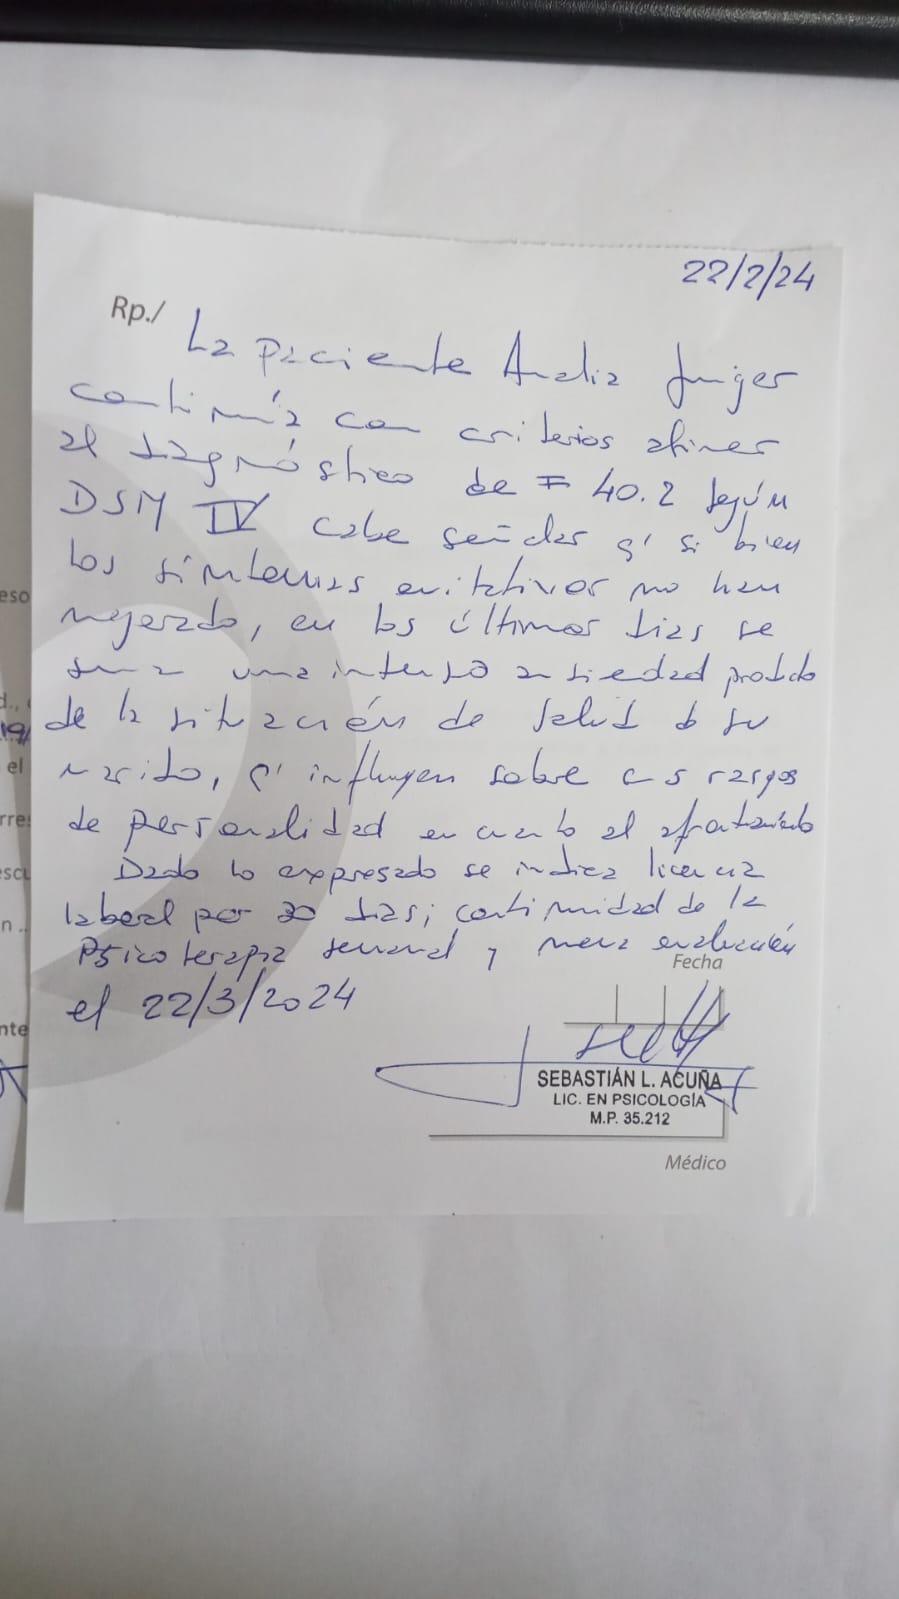 22/2/24
Rp./ La paciente Analia Junger
continúa con criterios afines
al diagnóstico de F 40.2 según
DSM IV cabe señalar q' si bien
los síntomas evitativos no han
mejorado, en los últimos días se
suma una intensa ansiedad producto
de la situación de salud d su
marido, q' influyen sobre rasgos
de personalidad en cuanto al afrontamiento
Dado lo expresado se indica licencia
laboral por 30 días; continuidad de la
Psicoterapia semanal y nueva evaluación
Fecha
el 22/3/2024
SEBASTIÁN L. ACUÑA
LIC. EN PSICOLOGÍA
M.P. 35.212
Médico
eso
d.,
19/
el
rre
escu
n ..
nte